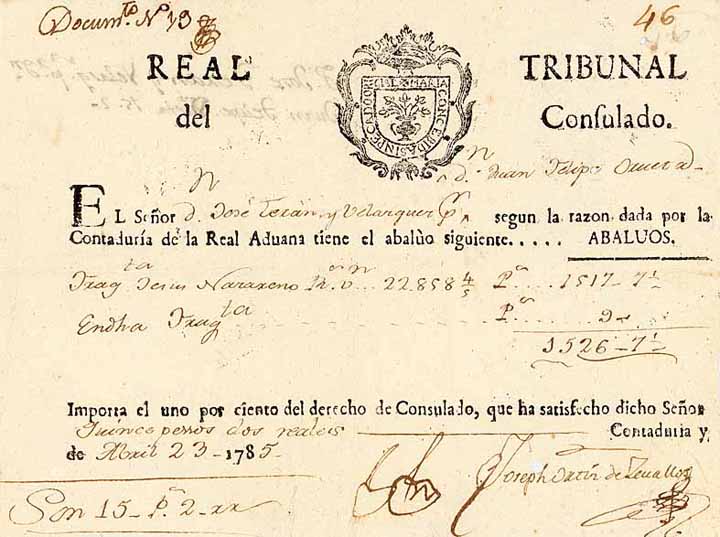 Documto. Nº 13
46
REAL TRIBUNAL
del Conſulado.
CIEL MARIA CONCEBIDA SIN PECADO ORI
dn. Juan Felipe
EL Señor dn. José Terán y Velazquez pr. segun la razon dada por la
Contaduría de la Real Aduana tiene el abalùo siguiente..... ABALUOS.
Fragta Jesus Nazareno Rs. vn... 22.858 4/5 Ps... 1517-7½
En dha Fragta Ps... 9-
1526-7½
Importa el uno por ciento del derecho de Conſulado, que ha satisfecho dicho Señor
Quince pesos dos reales Contaduria y
de Abril 23-1785-
Joseph Ortín de Zevallos
Son 15-Ps. 2-rr